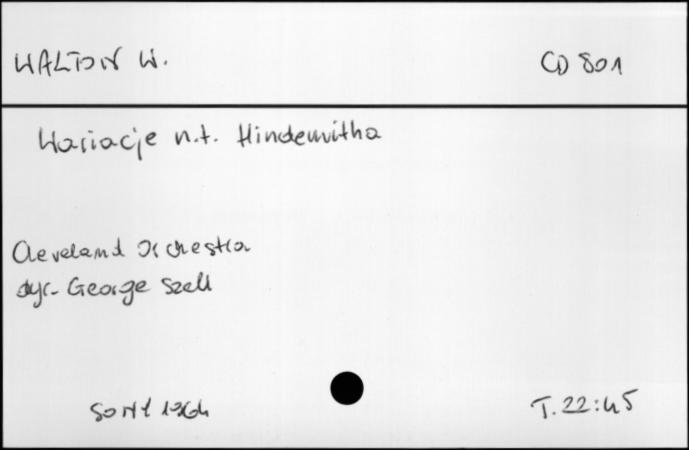 WALTON W.
CD 801
Wariacje n.t. Hindemitha
Cleveland Orchestra
dyr. George Szell
SONY 1964
T. 22:45